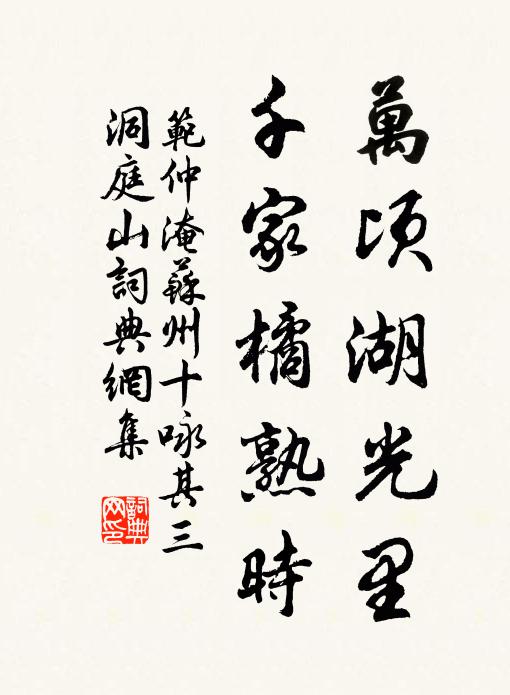 萬頃湖光里
千家橘熟時
範仲淹蘇州十咏其三
洞庭山詞典網集
詞典
网印